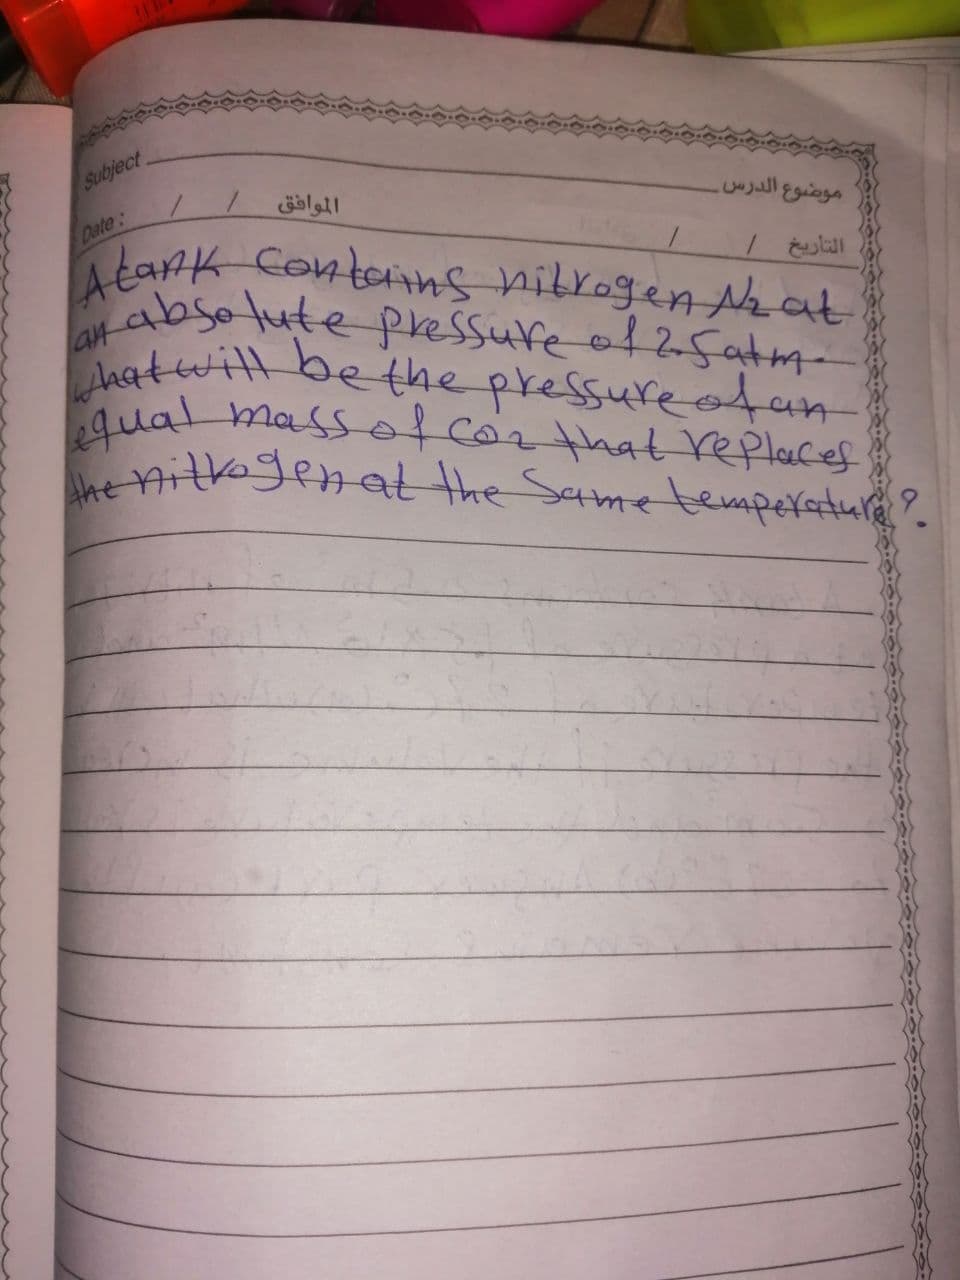 Subject موضوع الدرس
Date : / / الموافق / / التأريخ
A tank contains nitrogen N2 at
an absolute pressure of 2.5 atm.
what will be the pressure of an
equal mass of CO2 that replaces
the nitrogen at the same temperature?.